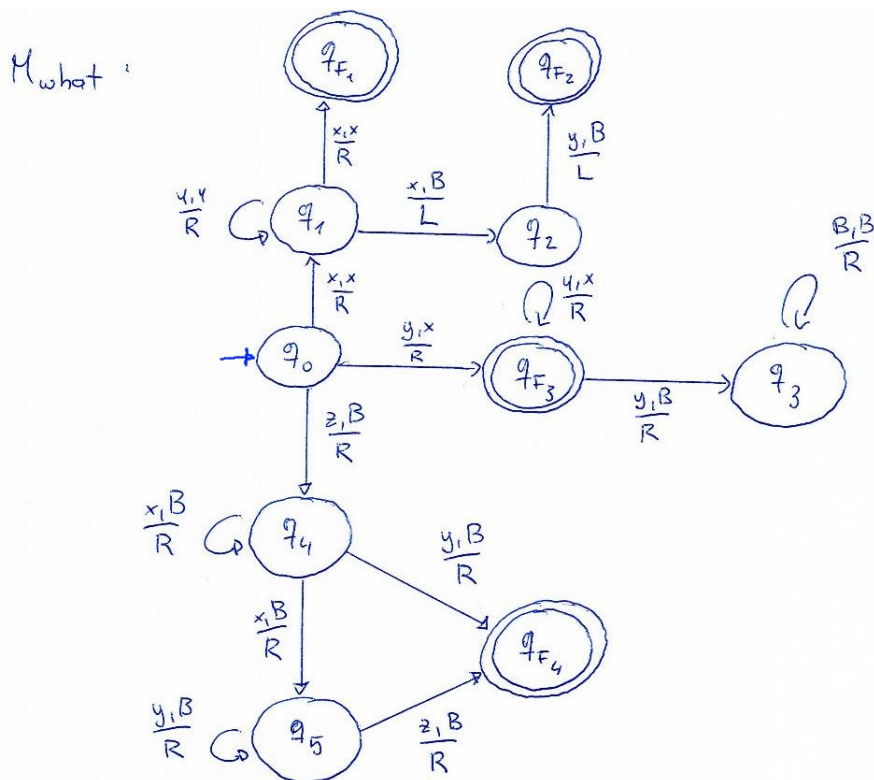 M what :
q F₁
q F₂
x,x
R
y,B
L
y,y
R
q₁
x,B
L
q₂
B,B
R
x,x
R
y,x
R
q₀
y,x
R
q F₃
q₃
z,B
R
y,B
R
x,B
R
q₄
y,B
R
x,B
R
q F₄
y,B
R
q₅
z,B
R